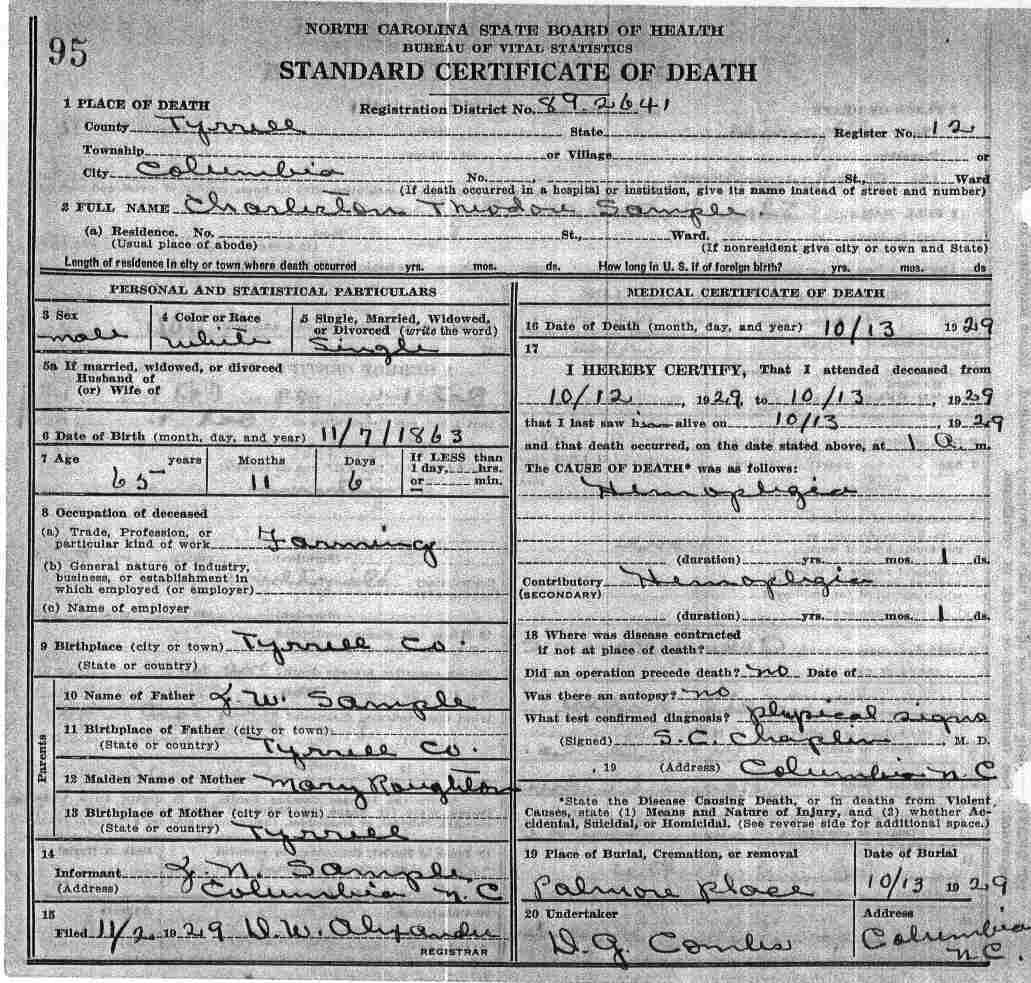 95
NORTH CAROLINA STATE BOARD OF HEALTH
BUREAU OF VITAL STATISTICS
STANDARD CERTIFICATE OF DEATH
1 PLACE OF DEATH Registration District No. 89-2641
County Tyrrell State Register No. 12
Township or Village or
City Columbia No. , St., Ward
(If death occurred in a hospital or institution, give its name instead of street and number)
2 FULL NAME Charleston Theodore Sample.
(a) Residence. No. St., Ward.
(Usual place of abode) (If nonresident give city or town and State)
Length of residence in city or town where death occurred yrs. mos. ds. How long in U. S. if of foreign birth? yrs. mos. ds
PERSONAL AND STATISTICAL PARTICULARS
3 Sex
male
4 Color or Race
White
5 Single, Married, Widowed,
or Divorced (write the word)
Single
5a If married, widowed, or divorced
Husband of
(or) Wife of
6 Date of Birth (month, day, and year) 11/7/1863
7 Age years Months Days If LESS than
1 day, hrs.
or min.
65 11 6
8 Occupation of deceased
(a) Trade, Profession, or
particular kind of work Farming
(b) General nature of industry,
business, or establishment in
which employed (or employer)
(c) Name of employer
9 Birthplace (city or town) Tyrrell Co.
(State or country)
Parents
10 Name of Father W. Sample
11 Birthplace of Father (city or town)
(State or country) Tyrrell Co.
12 Maiden Name of Mother Mary Roughton
13 Birthplace of Mother (city or town)
(State or country) Tyrrell
14
Informant N. Sample
(Address) Columbia N.C
15
Filed 11/2 1929 D.W. Alexander
REGISTRAR
MEDICAL CERTIFICATE OF DEATH
16 Date of Death (month, day, and year) 10/13 1929
17
I HEREBY CERTIFY, That I attended deceased from
10/12 , 1929, to 10/13 , 1929
that I last saw him alive on 10/13 , 1929
and that death occurred, on the date stated above, at 1 a. m.
The CAUSE OF DEATH* was as follows:
Hemoplegia
(duration) yrs. mos. 1 ds.
Contributory Hemoplegia
(SECONDARY)
(duration) yrs. mos. 1 ds.
18 Where was disease contracted
if not at place of death?
Did an operation precede death? no Date of
Was there an autopsy? no
What test confirmed diagnosis? physical signs
(Signed) S.C. Chaplin , M. D.
, 19 (Address) Columbia N C
*State the Disease Causing Death, or in deaths from Violent
Causes, state (1) Means and Nature of Injury, and (2) whether Ac-
cidental, Suicidal, or Homicidal. (See reverse side for additional space.)
19 Place of Burial, Cremation, or removal
Palmore Place
Date of Burial
10/13 1929
20 Undertaker
D. G. Combs
Address
Columbia
N.C.